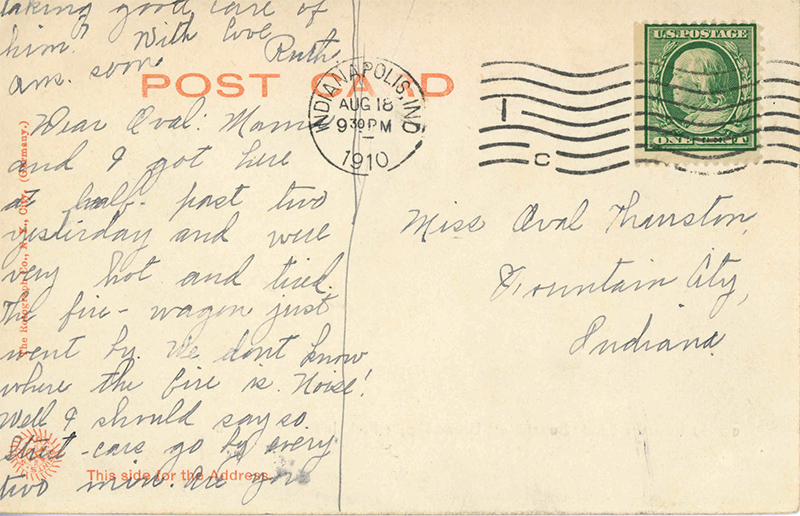 taking good care of
him? With love
Ruth
ans. soon
POST CARD
INDIANAPOLIS, IND
AUG 18
9 30 PM
1910
1
C
U.S. POSTAGE
ONE CENT
Dear Oval: Mama
and I got here
at half-past two
yesterday and were
very hot and tired.
The fire-wagon just
went by. We dont know
where the fire is. Noise!
Well I should say so.
Street-cars go by every
two min. Are you
Miss Oval Thurston,
Fountain City,
Indiana.
The Rotograph Co., N. Y. City. (Germany.)
This side for the Address.